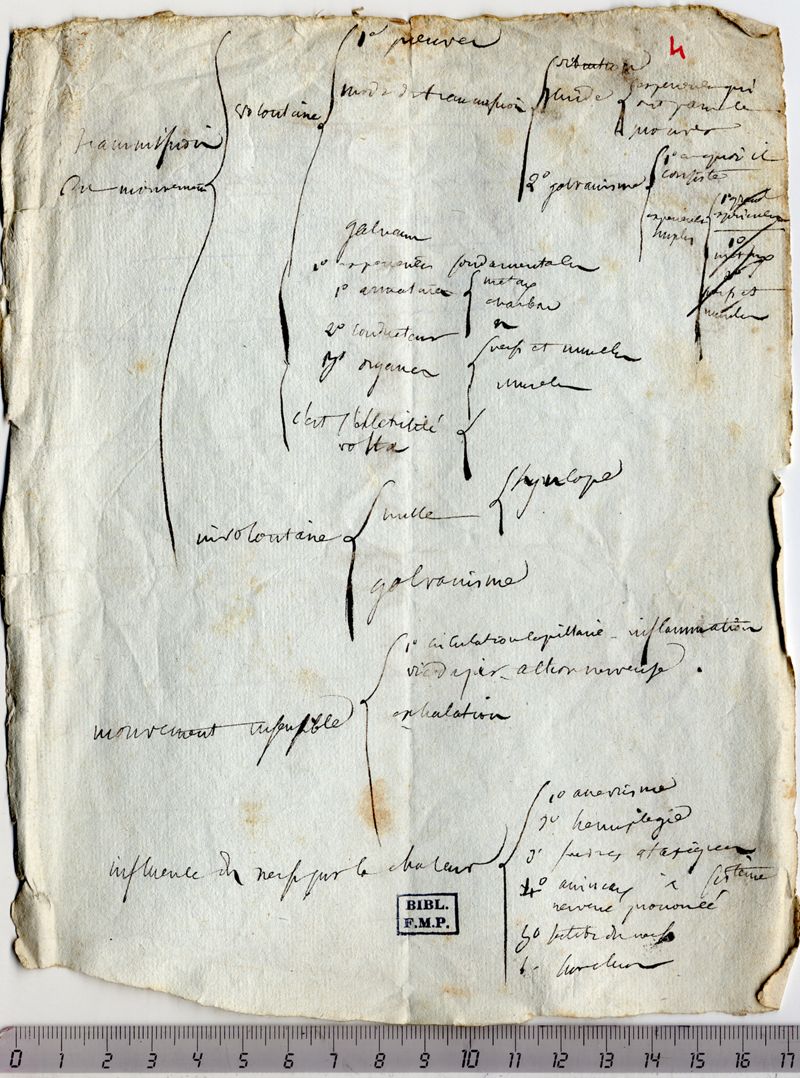 4
1° preuves
volontaire
mode de transmission
transmission
du mouvement
fluide
experiences qui
2° galvanisme
1° en quoi il
consiste
experiences
simples
1°
galvani
1° experiences fondamentales
1° armatures
metaux
charbon
2° conducteurs
3° organes
nerfs et muscles
muscles
c'est l'électricité
volta
involontaire
nulle
syncope
galvanisme
1° circulation capillaire - inflammation
action nerveuse
exhalation
mouvement insensible
influence des nerfs sur la chaleur
1° anevrisme
2° hemiplegie
3° fievres ataxiques
4° animaux à système
nerveux prononcé
5° section du nerf
6°
BIBL.
F.M.P.
0 1 2 3 4 5 6 7 8 9 10 11 12 13 14 15 16 17